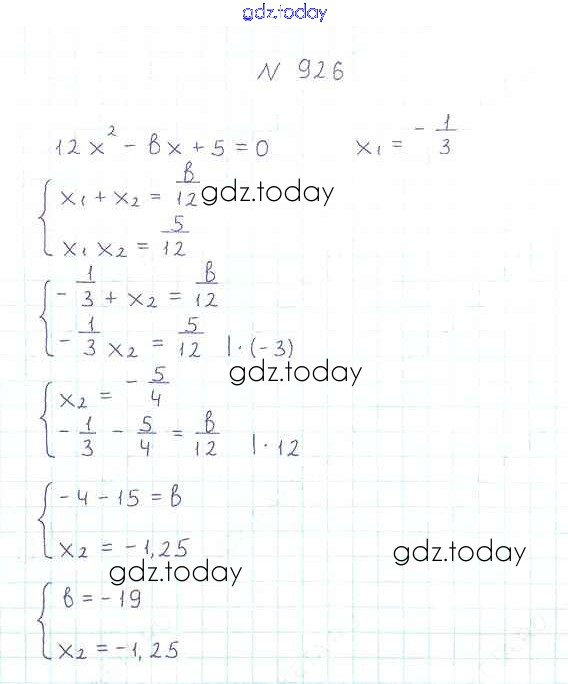 gdz.today
N 926
12x² - вx + 5 = 0 x₁ = -1/3
{ x₁ + x₂ = в/12 gdz.today
x₁ x₂ = 5/12
{ -1/3 + x₂ = в/12
-1/3 x₂ = 5/12 |·(-3)
gdz.today
{ x₂ = -5/4
-1/3 - 5/4 = в/12 |·12
{ -4 - 15 = в
x₂ = -1,25 gdz.today
gdz.today
{ в = -19
x₂ = -1,25